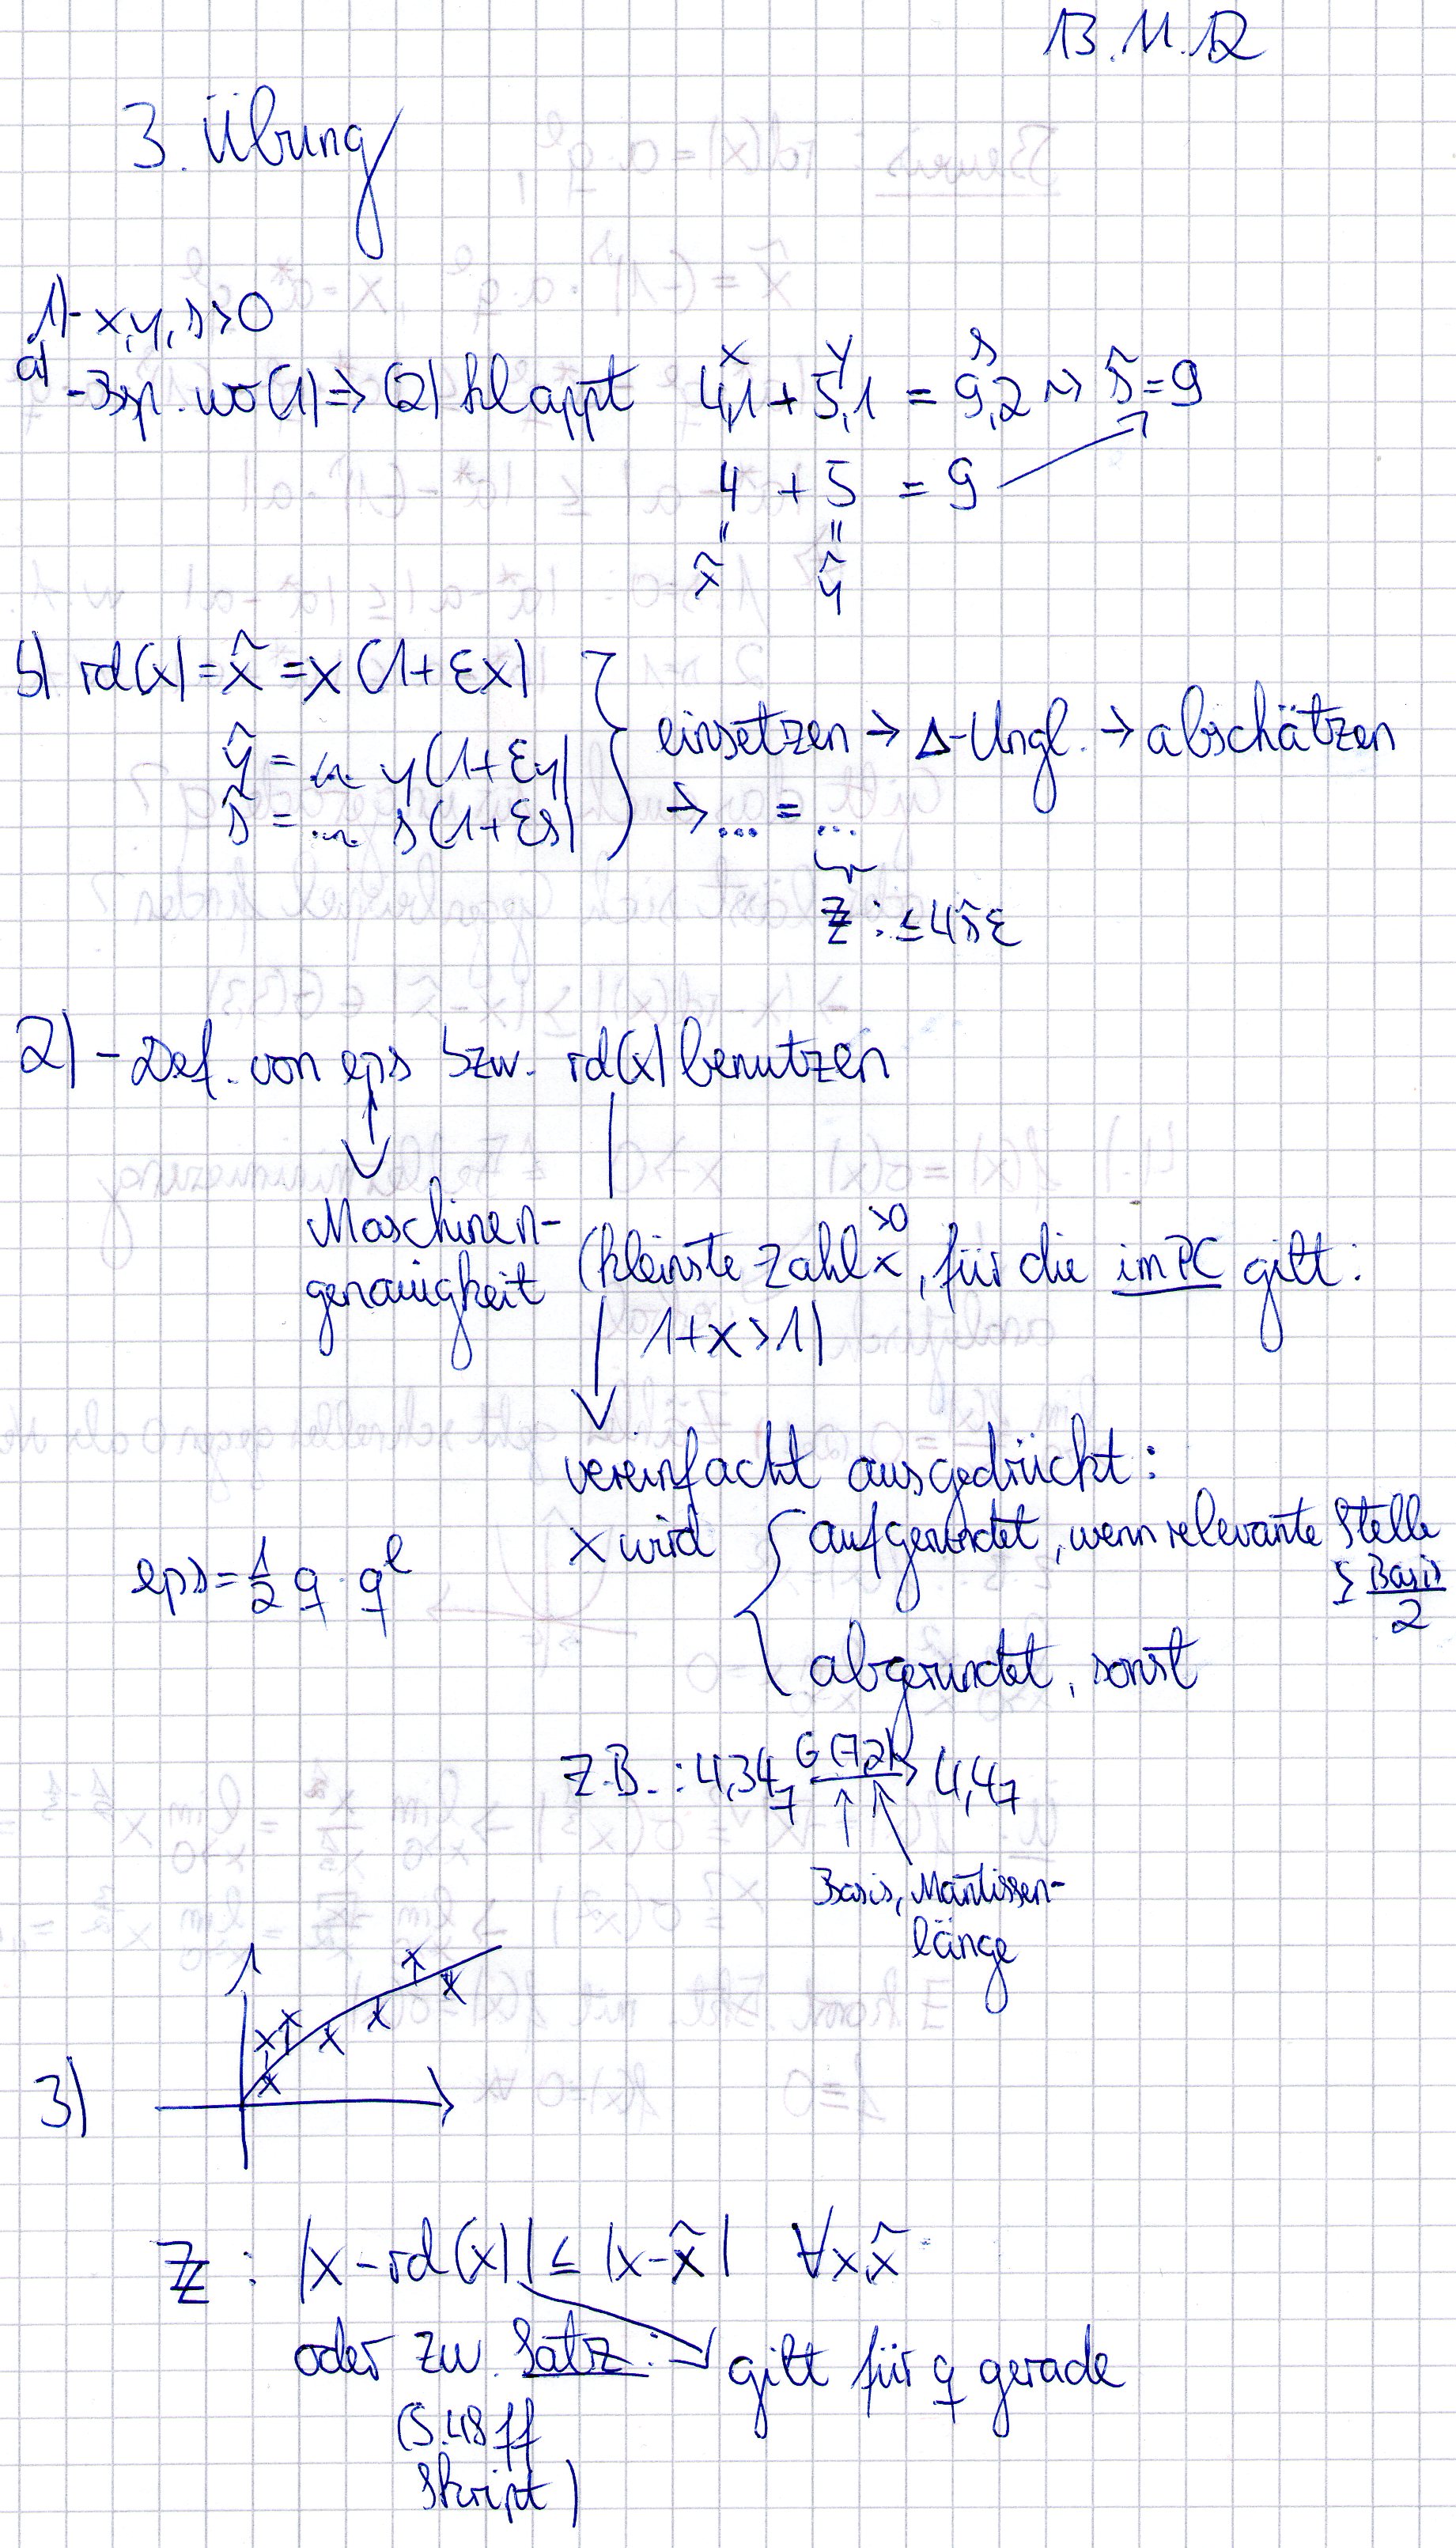 13.11.12
3. Übung
1) - x,y,s>0
a) -Bsp. wo (1) => (2) klappt
x y s
4,1 + 5,1 = 9,2 ~> s̃ = 9
4 + 5 = 9
" "
x̃ ỹ
b) rd(x) = x̃ = x(1+εx)
ỹ = ... y(1+εy)
s̃ = ... s(1+εs)
einsetzen → Δ-Ungl. → abschätzen
→ ... = ...
Z: ≤ 4s̃ε
2) - Def. von eps bzw. rd(x) benutzen
Maschinen-
genauigkeit
(kleinste Zahl x >0, für die im PC gilt:
1+x>1)
vereinfacht ausgedrückt:
x wird { aufgerundet, wenn relevante Stelle
≥ Basis/2
abgerundet, sonst
eps = 1/2 q · q^l
Z.B.: 4,34₇ G(7,2)→ 4,4₇
Basis, Mantissen-
länge
3)
Z: |x-rd(x)| ≤ |x-x̃| ∀x,x̃
oder zw. Satz: → gilt für q gerade
(S.48ff
Skript)